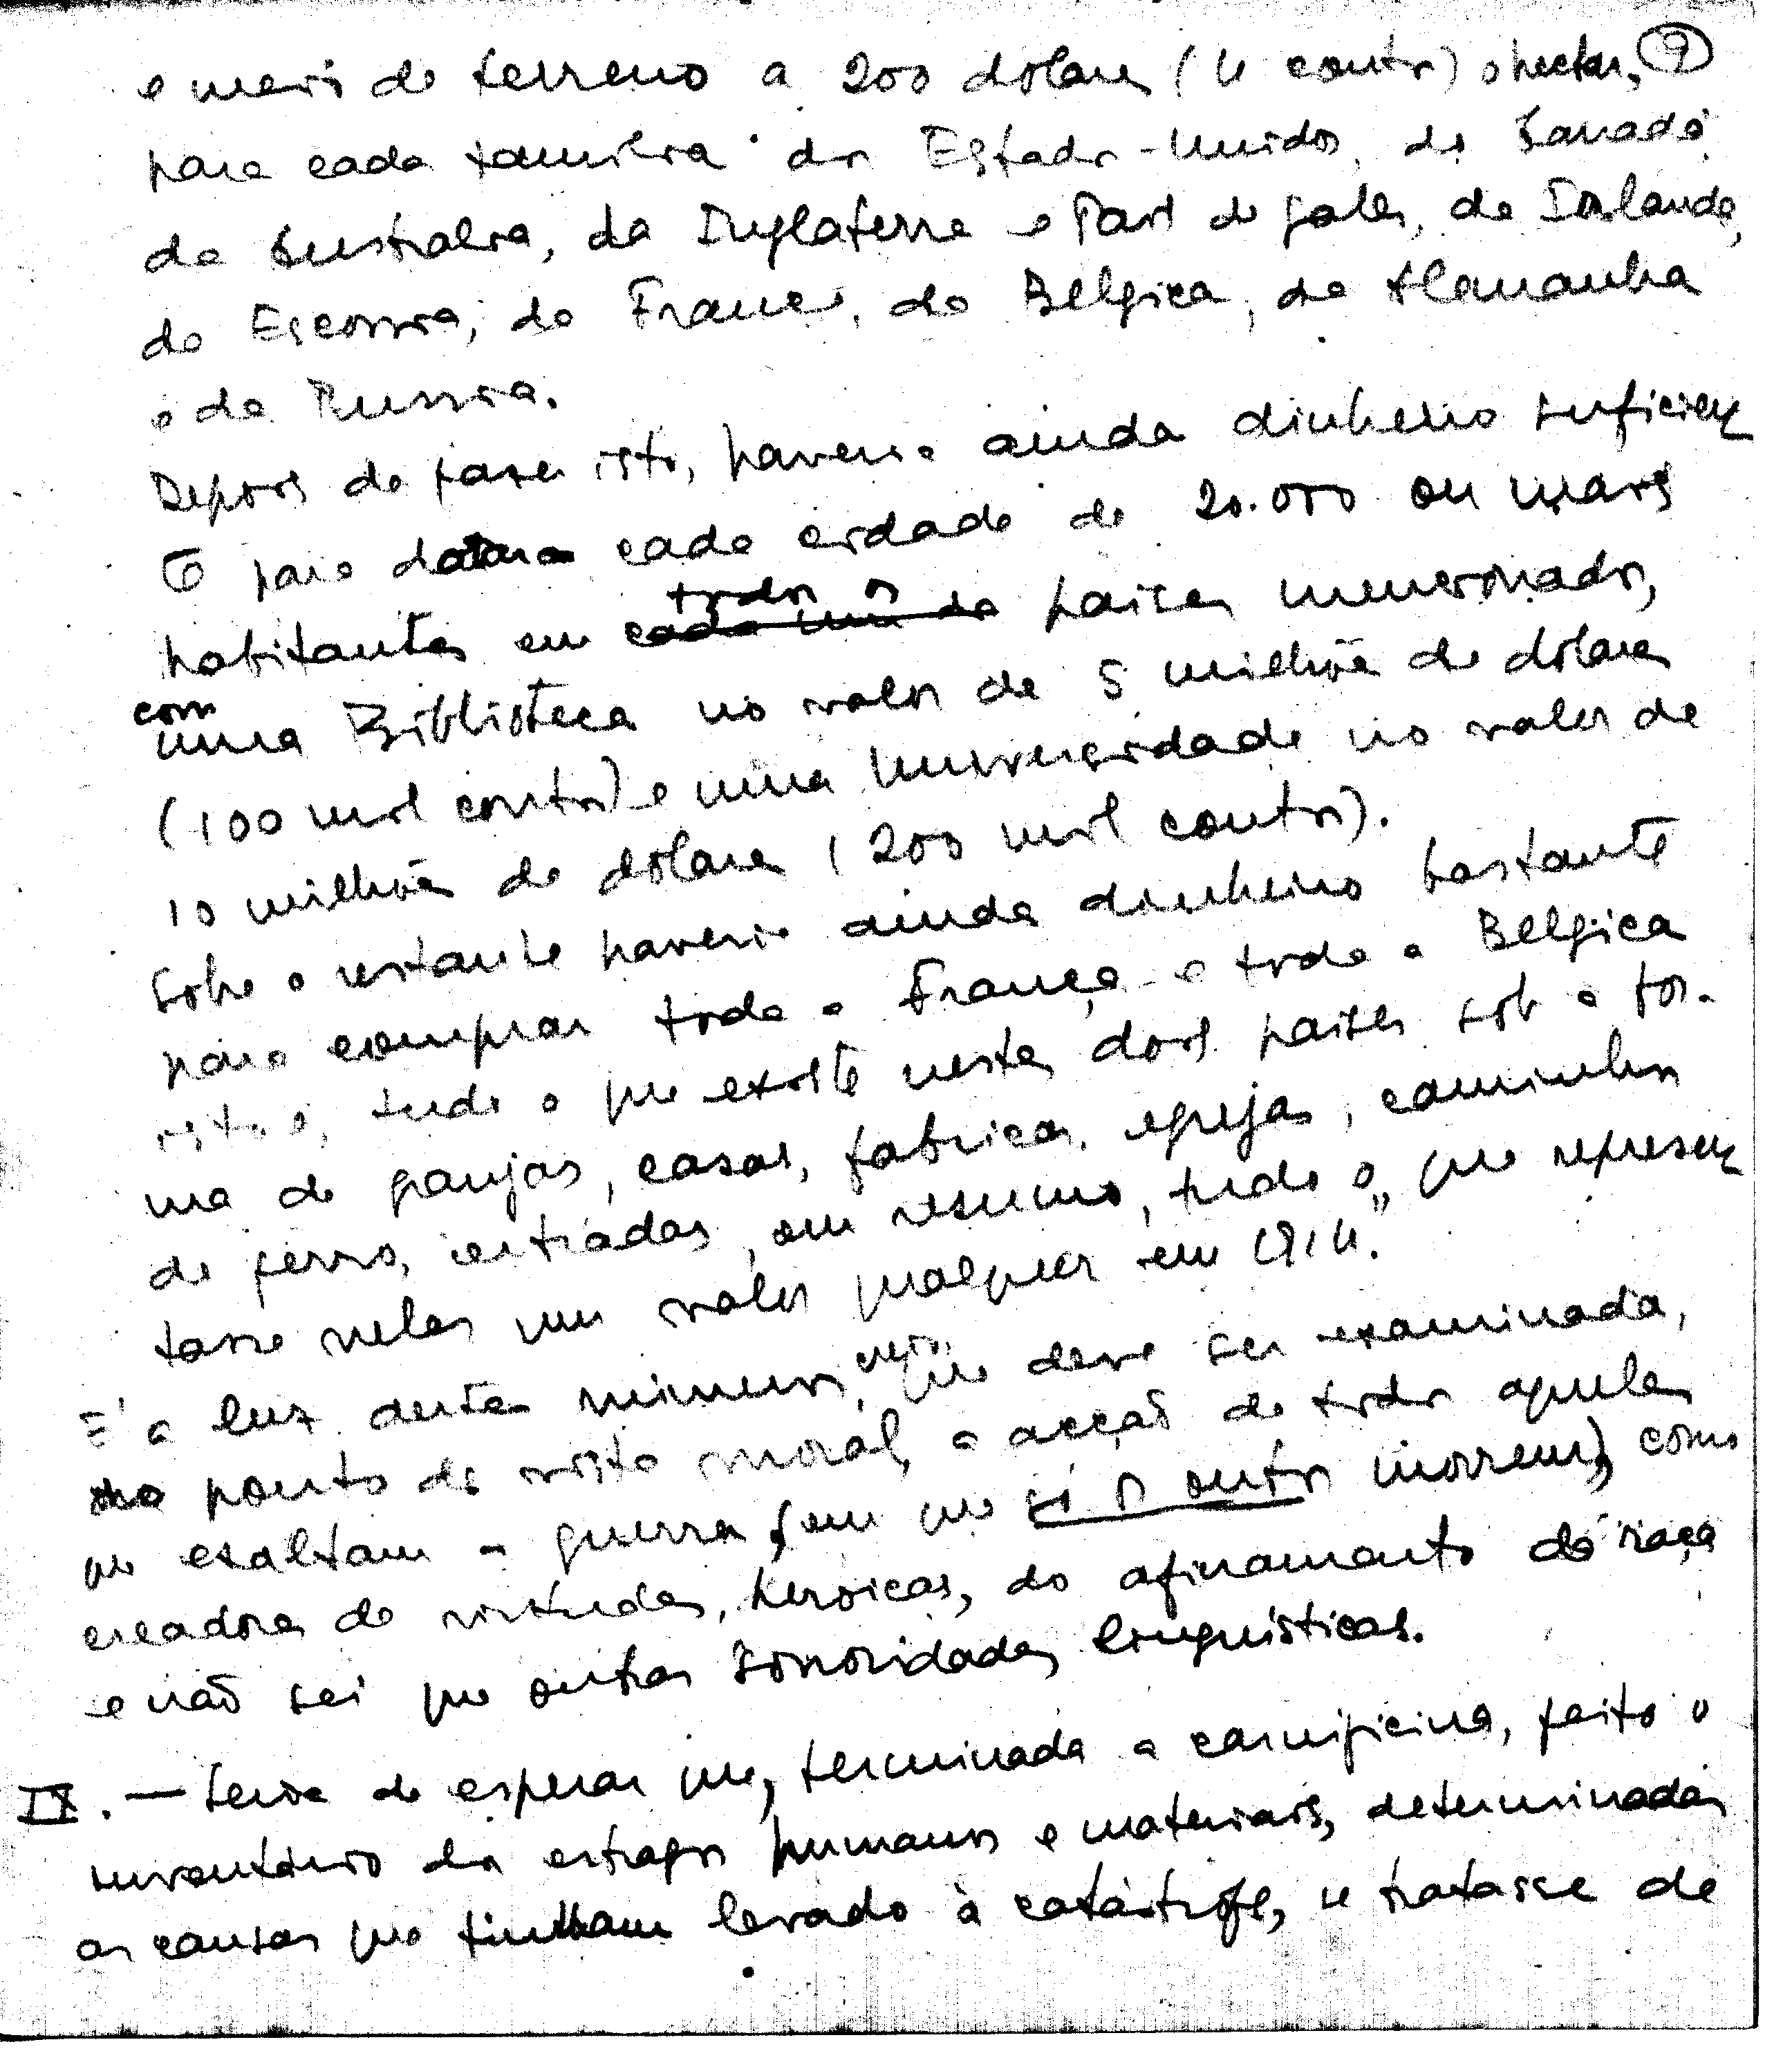 e meio de terreno a 200 dolares (4 contos) o hectar, 9
para cada familia dos Estados-Unidos, do Canadá,
da Australia, da Inglaterra e Pais de Gales, da Irlanda,
da Escossia, da França, da Belgica, da Alemanha
e da Russia.
Depois de fazer isto, haveria ainda dinheiro suficien
te para dotar a cada cidade de 20.000 ou mais
habitantes em cada um do todos os paises mencionados,
com uma Biblioteca no valor de 5 milhões de dolares
(100 mil contos) e uma Universidade no valor de
10 milhões de dolares (200 mil contos).
Sobre o restante haveria ainda dinheiro bastante
para comprar toda a França e toda a Belgica
isto é, tudo o que existe nestes dois paises sob a for-
ma de granjas, casas, fabricas, egrejas, caminhos
de ferro, estradas, em resumo, tudo o que represen
tasse neles um valor qualquer em 1914."
E' á luz destes numeros, que deve ser examinada,
no ponto de vista moral, a acção de todos aqueles
que exaltam a guerra (em que só os outros morrem), como
creadora de virtudes, heroicas, do afinamento da raça
e não sei que outras sonoridades linguisticas.
IX. — Seria de esperar que, terminada a carnificina, feito o
inventário dos estragos humanos e materiais, determinadas
as causas que tinham levado à catástrofe, se tratasse de